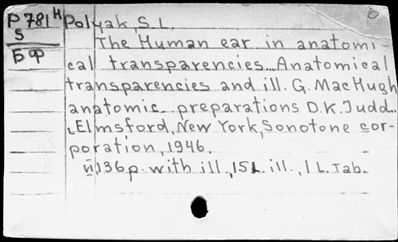 P 781 H Polyak, S. L.
5 The Human ear in anatomi-
Бф cal transparencies... Anatomical
transparencies and ill. G. MacHugh
anatomic preparations D. K. Judd...
Elmsford, New York, Sonotone cor-
poration, 1946.
VI, 136 p. with ill., 15 L. ill., 1 L. Tab.